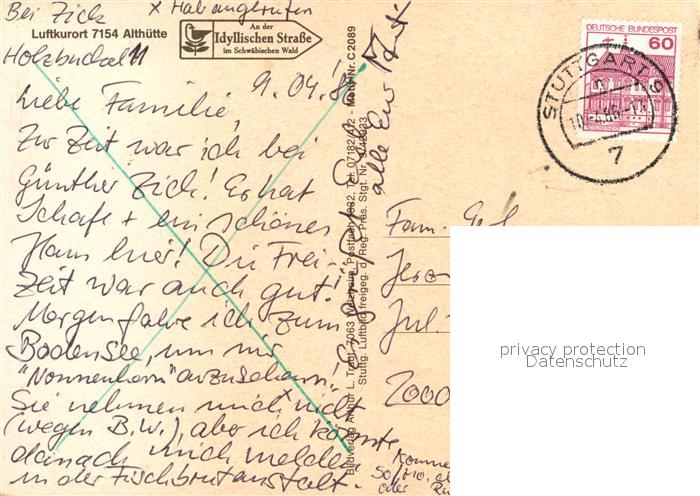 Bei Zick x Hab angerufen
Luftkurort 7154 Althütte
An der
Idyllischen Straße
im Schwäbischen Wald
Holzbuckel 11
9.04.
Liebe Familie,
Zur Zeit war ich bei
Günther Zick! Er hat
Schafe + ein schönes
Haus hier! Die Frei-
zeit war auch gut!
Morgen fahre ich zum
Bodensee, um mir
"Nonnenhorn" anzusehen!
Sie nehmen mich x nicht
(wegen B.W.), aber ich könnte
danach mich melden
in der Fischbrutanstalt.
alle Euer
Motiv-Nr. C 2089
Bildverlag Arthur L. 7063 Welzheim, Postfach 1682, Tel. 07182/
Stuttg. Luftbild freigeg. d. Reg. Präs. Stgt. Nr.
DEUTSCHE BUNDESPOST
60
STUTTGART 9
7
Fam.
Jul.
2000
Komme
So/Mo.
oder
privacy protection
Datenschutz